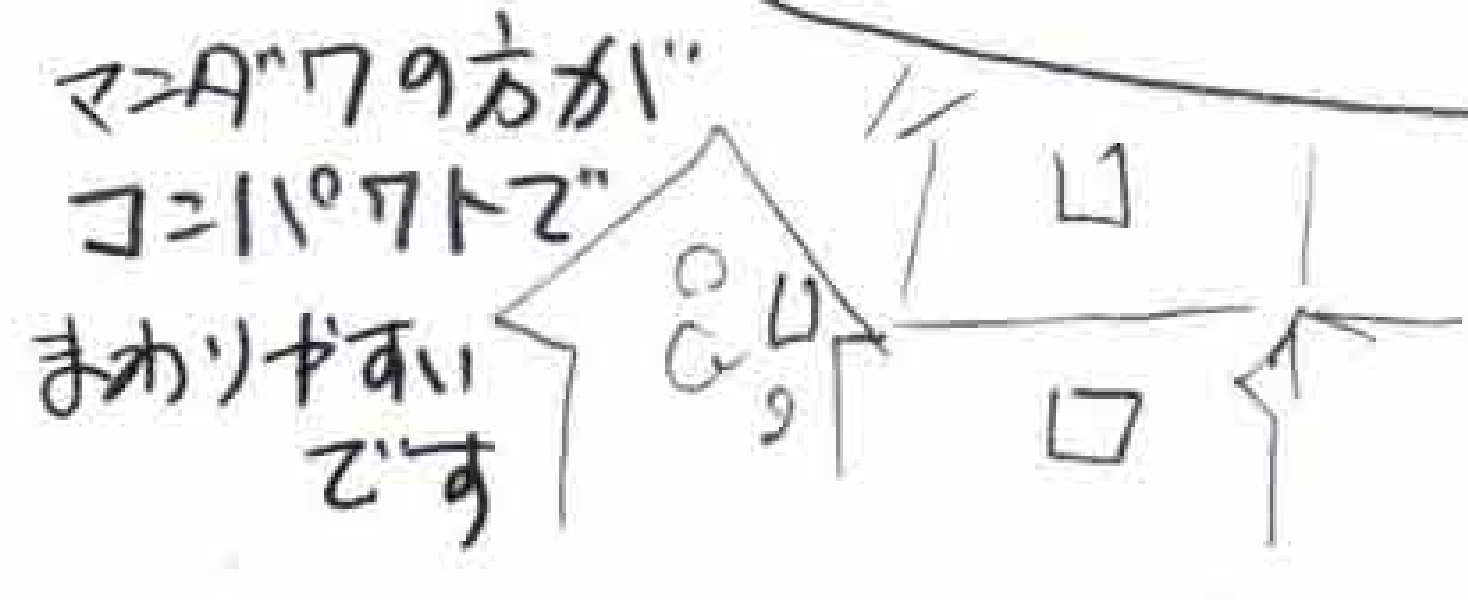 マンダワの方が
コンパクトで
まわりやすい
です